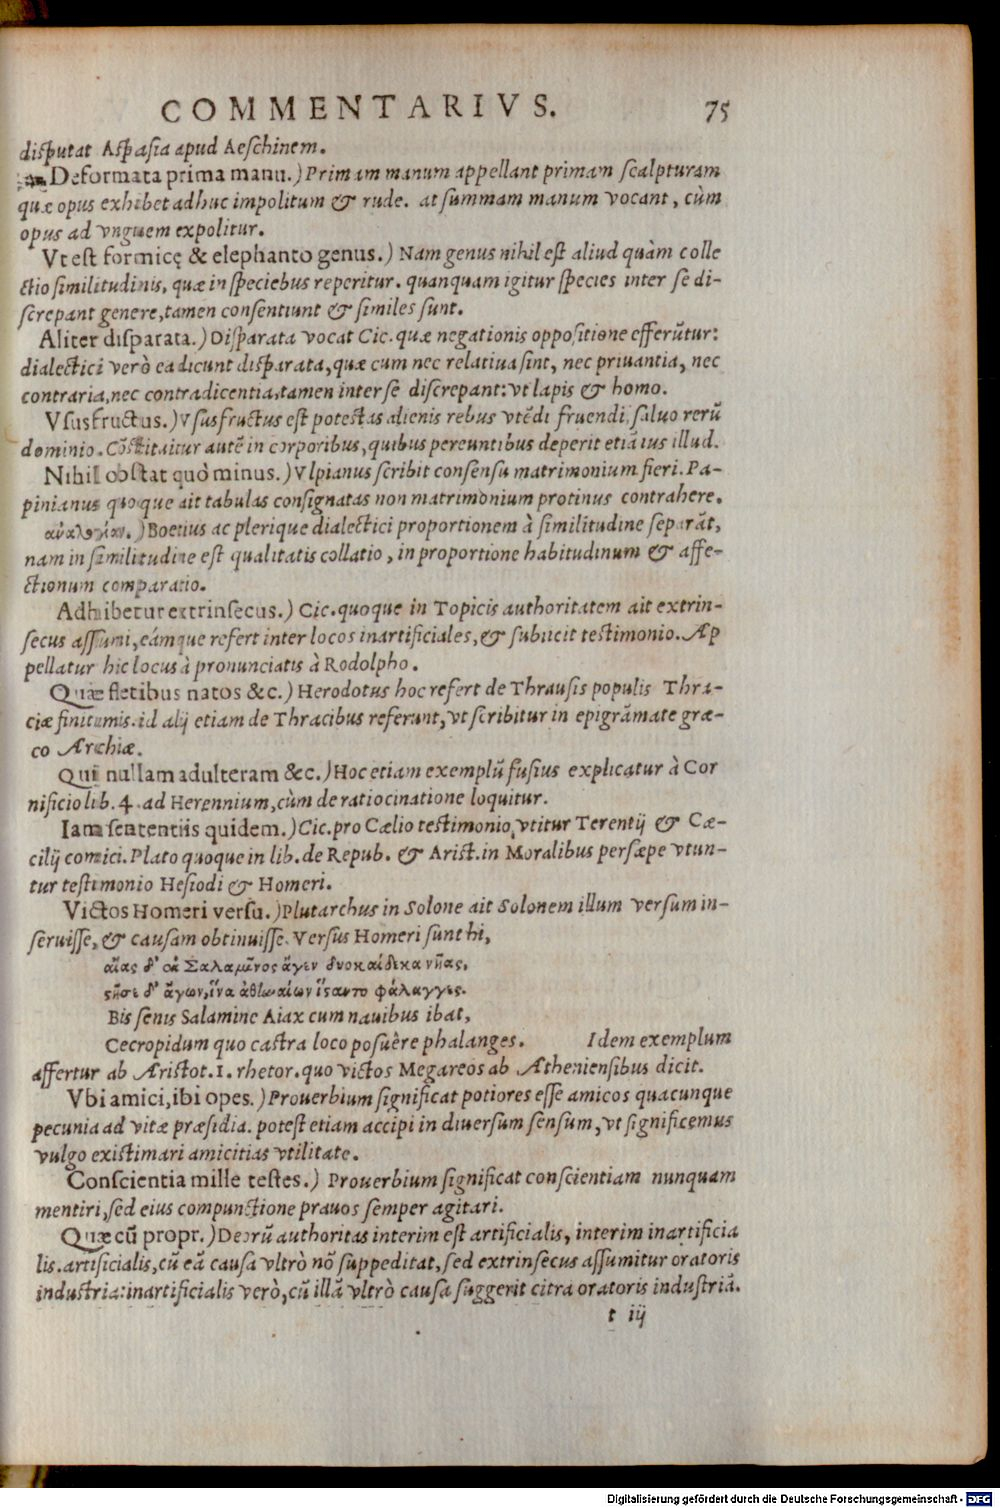 COMMENTARIVS. 75
disputat Aspasia apud Aeschinem.
Deformata prima manu.) Primam manum appellant primam scalpturam
quæ opus exhibet adhuc impolitum & rude. at summam manum vocant, cùm
opus ad vnguem expolitur.
Vt est formicę & elephanto genus.) Nam genus nihil est aliud quàm colle
ctio similitudinis, quæ in speciebus reperitur. quanquam igitur species inter se di-
screpant genere, tamen consentiunt & similes sunt.
Aliter disparata.) Disparata vocat Cic. quæ negationis oppositione efferūtur:
dialectici verò ea dicunt disparata, quæ cum nec relatiua sint, nec priuantia, nec
contraria, nec contradicentia, tamen inter se discrepant: vt lapis & homo.
Vsusfructus.) Vsusfructus est potestas alienis rebus vtēdi fruendi, saluo rerū
dominio. Cōstituitur autē in corporibus, quibus pereuntibus deperit etiā ius illud.
Nihil obstat quò minus.) Vlpianus scribit consensu matrimonium fieri. Pa-
pinianus quoque ait tabulas consignatas non matrimonium protinus contrahere.
ἀναλογίαν.) Boetius ac plerique dialectici proportionem à similitudine separāt,
nam in similitudine est qualitatis collatio, in proportione habitudinum & affe-
ctionum comparatio.
Adhibetur extrinsecus.) Cic. quoque in Topicis authoritatem ait extrin-
secus assumi, eámque refert inter locos inartificiales, & subiicit testimonio. Æp
pellatur hic locus à pronunciatis à Rodolpho.
Quæ fletibus natos &c.) Herodotus hoc refert de Thrausis populis Thra-
ciæ finitimis. id alij etiam de Thracibus referunt, vt scribitur in epigrāmate græ-
co Archiæ.
Qui nullam adulteram &c.) Hoc etiam exemplū fusius explicatur à Cor
nificio lib. 4. ad Herennium, cùm de ratiocinatione loquitur.
Iam sententiis quidem.) Cic. pro Cælio testimonio vtitur Terentij & Cæ-
cilij comici. Plato quoque in lib. de Repub. & Arist. in Moralibus persæpe vtun-
tur testimonio Hesiodi & Homeri.
Victos Homeri versu.) Plutarchus in Solone ait Solonem illum versum in-
seruisse, & causam obtinuisse. Versus Homeri sunt hi,
αἴας δ' ἐκ Σαλαμῖνος ἄγεν δυοκαίδεκα νῆας,
στῆσε δ' ἄγων, ἵν' ἀθηναίων ἵσαντο φάλαγγες.
Bis senis Salamine Aiax cum nauibus ibat,
Cecropidum quo castra loco posuêre phalanges. Idem exemplum
affertur ab Aristot. 1. rhetor. quo victos Megareos ab Atheniensibus dicit.
Vbi amici, ibi opes.) Prouerbium significat potiores esse amicos quacunque
pecunia ad vitæ præsidia. potest etiam accipi in diuersum sensum, vt significemus
vulgo existimari amicitias vtilitate.
Conscientia mille testes.) Prouerbium significat conscientiam nunquam
mentiri, sed eius compunctione prauos semper agitari.
Quæ cū propr.) Deorū authoritas interim est artificialis, interim inartificia
lis. artificialis, cū eā causa vltrò nō suppeditat, sed extrinsecus assumitur oratoris
industria: inartificialis verò, cū illā vltrò causa suggerit citra oratoris industriā.
t iij
Digitalisierung gefördert durch die Deutsche Forschungsgemeinschaft - DFG